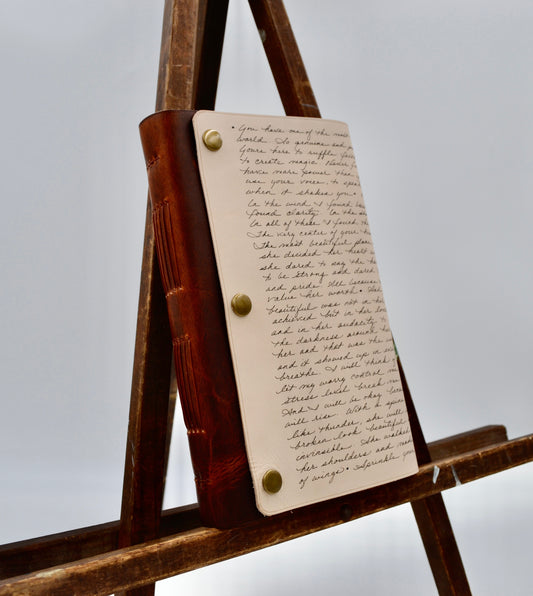 • You have me of the most
world. So genuine and
Youre here to ruffle
to create magic. Never
have more power than
use your voice, to speak
when it shakes you •
In the wind I found
found clarity. In the
In all of these I found the
The very center of your
The most beautiful
she decided her heart
she dared to say the
to be strong and dared
and pride. All because
value her worth •
beautiful was not in
achieved but in her
and in her audacity to
the darkness around
her and that was the
and it showed up in
breathe. I will think
let my worry control
stress level break
And I will be okay
will rise. With a
like thunder, she will
broken look beautiful
invincible. She walked
her shoulders and
of wings • Sprinkle